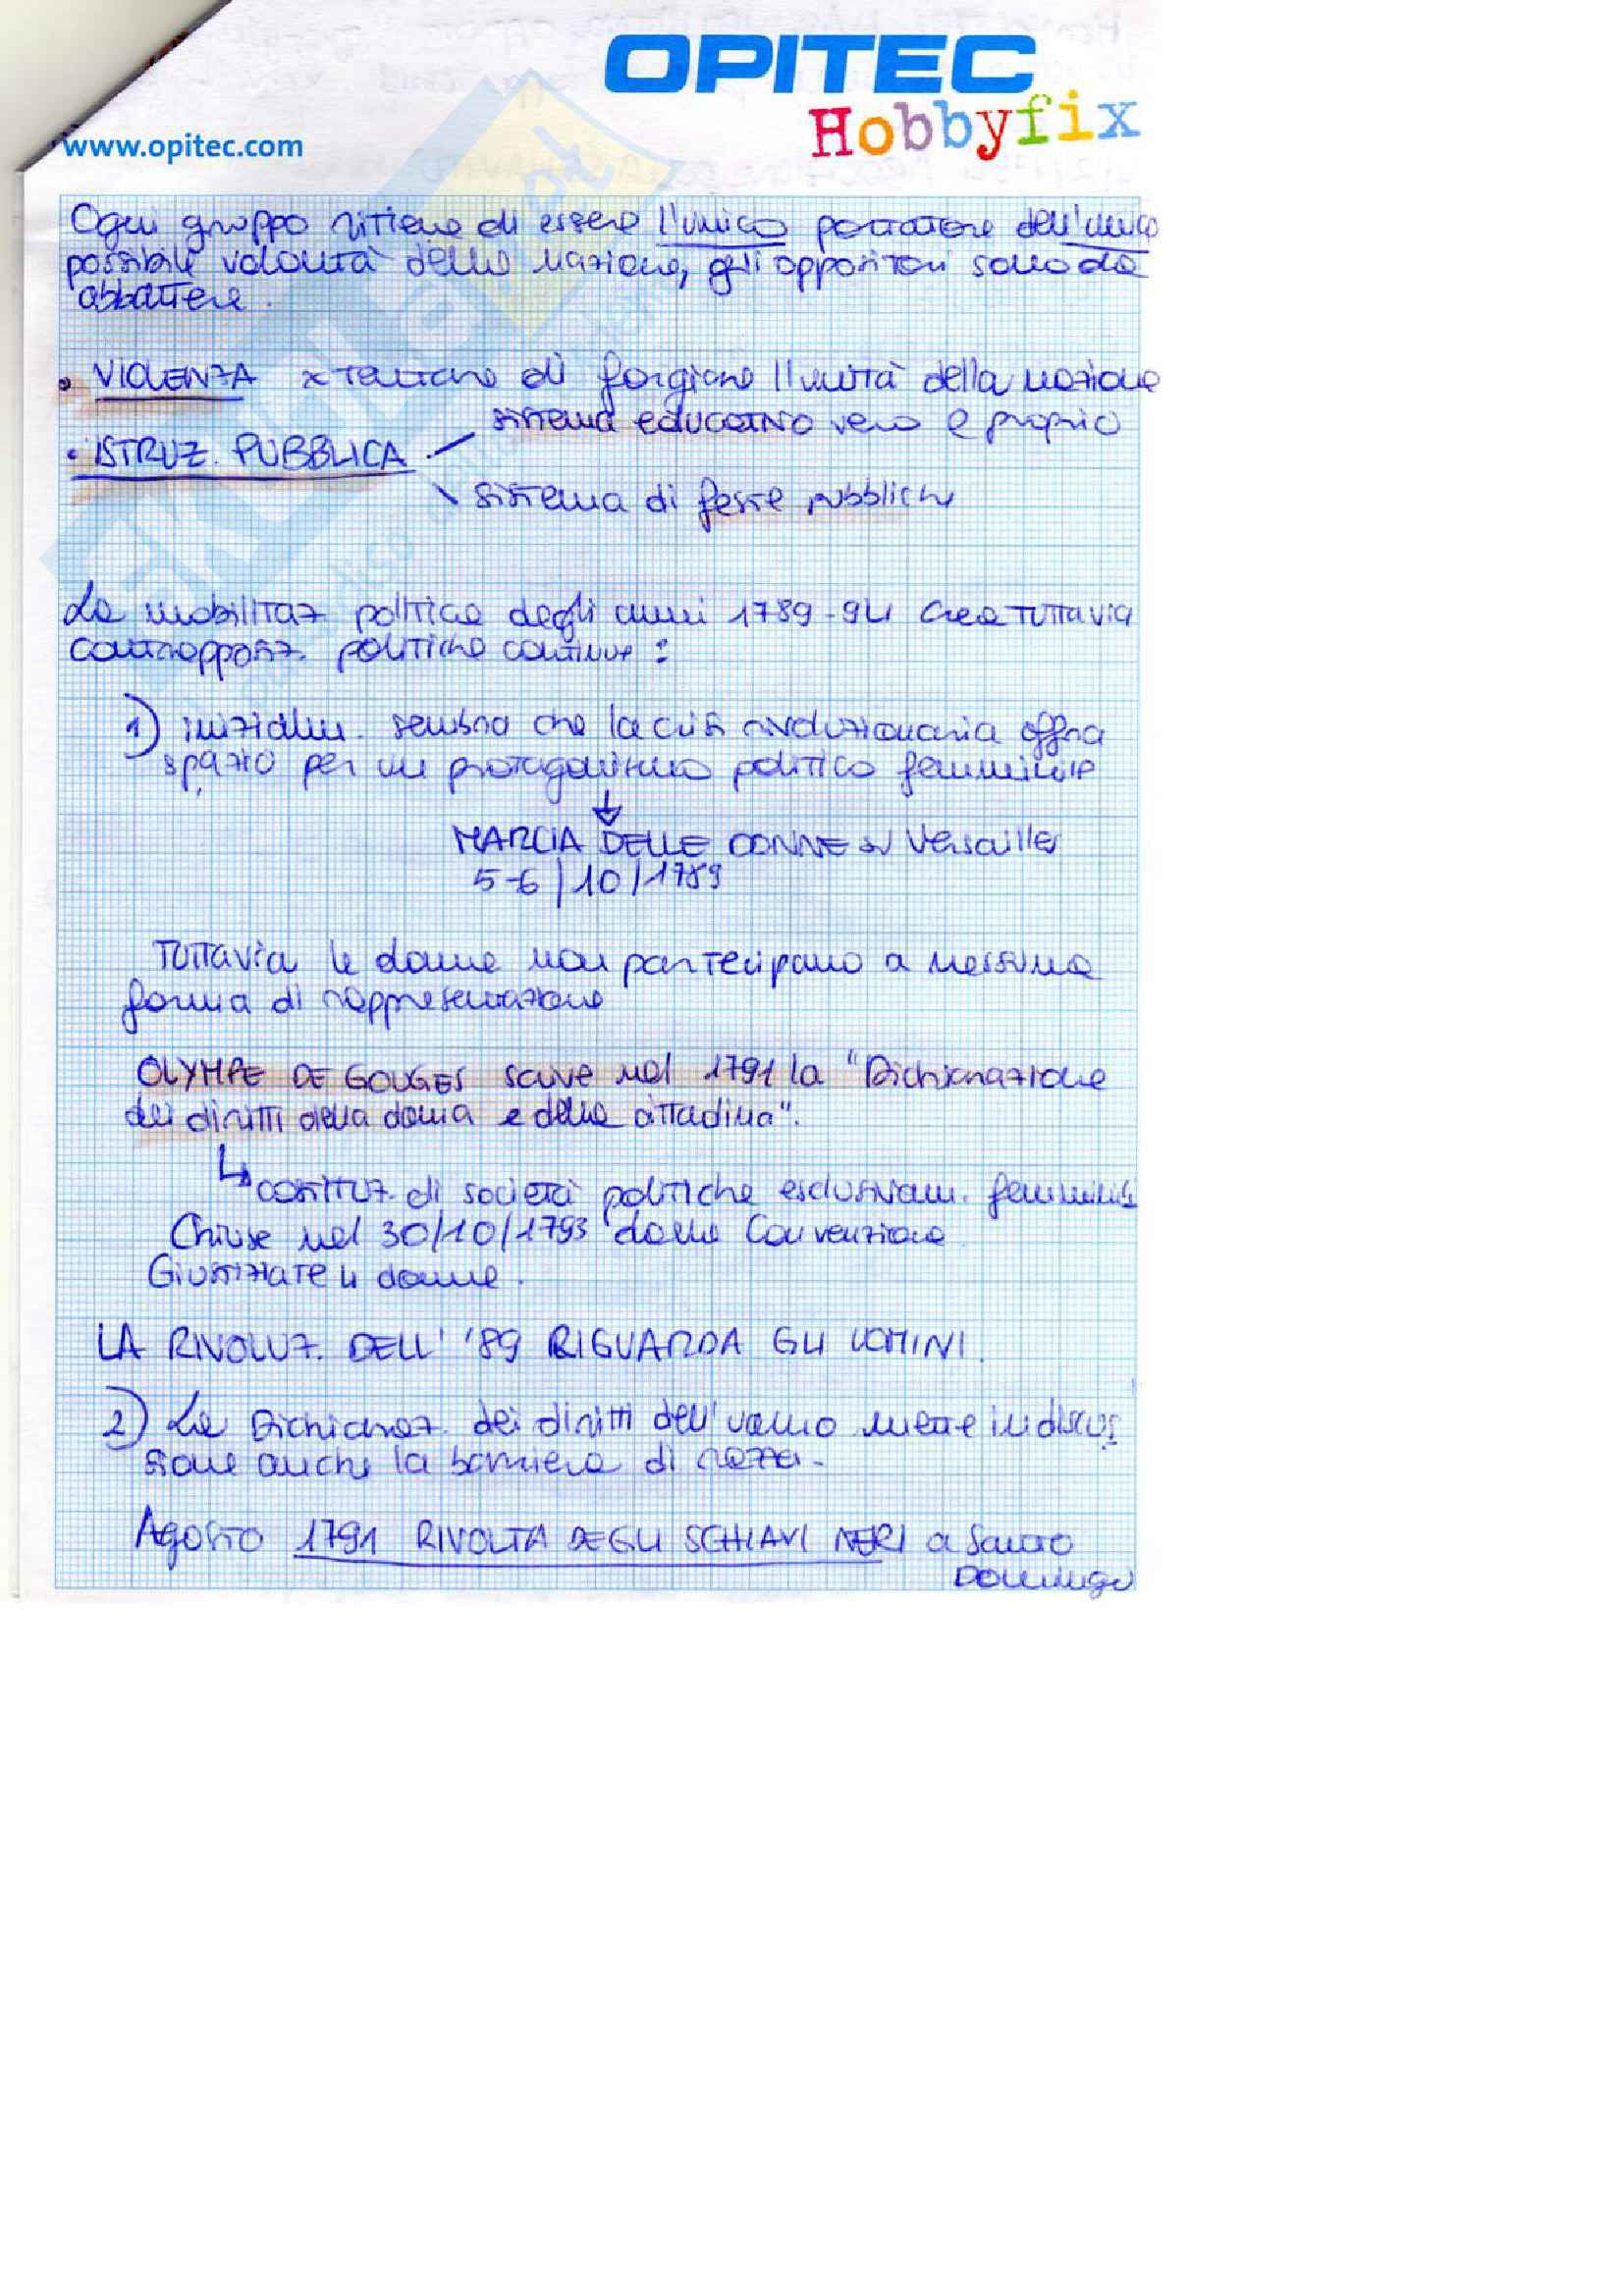 OPITEC
Hobbyfix
www.opitec.com
Ogni gruppo ritiene di essere l'unico portatore dell'unica
possibile volontà della nazione, gli oppositori sono da
abbattere.
• VIOLENZA x tentare di forgiare l'unità della nazione
sistema educativo vero e proprio
• ISTRUZ. PUBBLICA
sistema di feste pubbliche
La mobilitaz. politica degli anni 1789-94 crea tuttavia
contrapposiz. politiche continue:
1) inizialm. sembra che la crisi rivoluzionaria offra
spazio per un protagonismo politico femminile
↓
MARCIA DELLE DONNE su Versailles
5-6/10/1789
Tuttavia le donne non partecipano a nessuna
forma di rappresentazione
OLYMPE DE GOUGES scrive nel 1791 la "Dichiarazione
dei diritti della donna e della cittadina".
↳ costituz. di società politiche esclusivam. femminili
Chiuse nel 30/10/1793 dalla Convenzione
Giustiziate le donne.
LA RIVOLUZ. DELL' '89 RIGUARDA GLI UOMINI.
2) La Dichiaraz. dei diritti dell'uomo mette in discus
sione anche la barriera di razza.
Agosto 1791 RIVOLTA DEGLI SCHIAVI NERI a Santo
Domingo